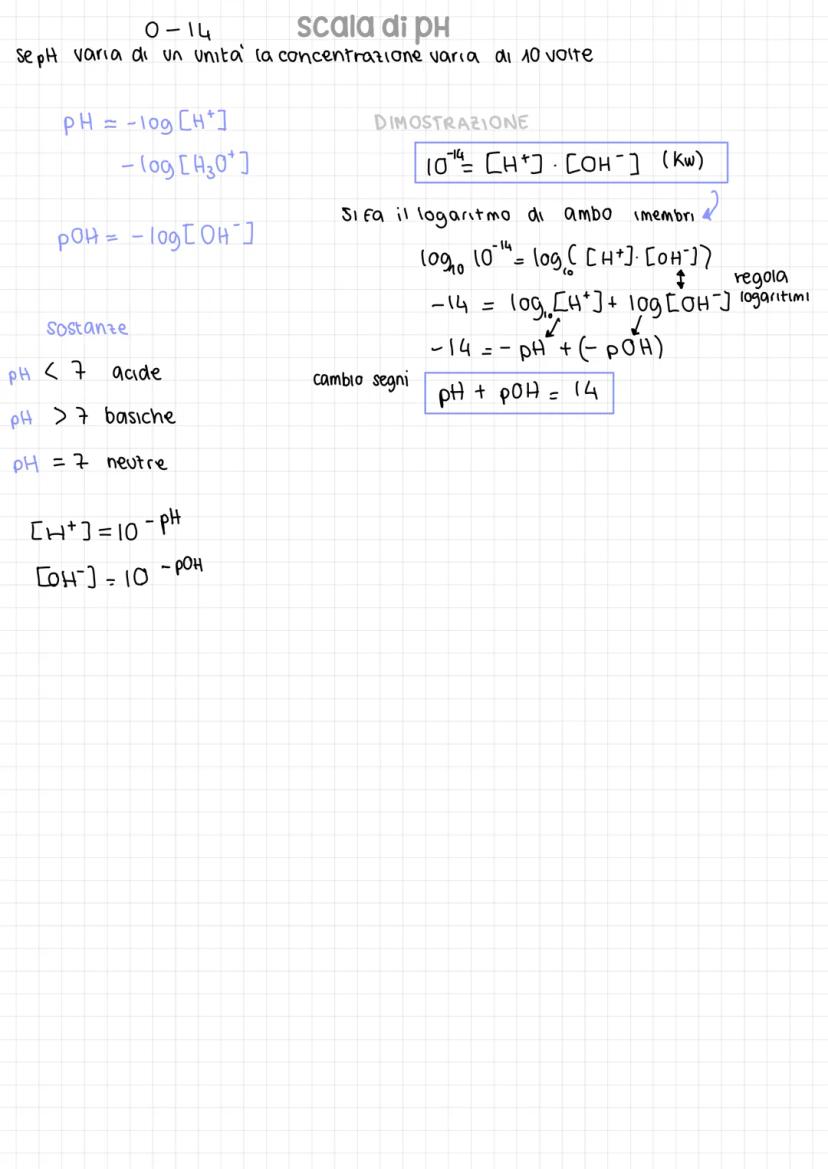 0-14 scala di pH
se pH varia di un unità la concentrazione varia di 10 volte
pH = -log[H⁺]
-log[H₃O⁺]
pOH = -log[OH⁻]
sostanze
pH < 7 acide
pH > 7 basiche
pH = 7 neutre
[H⁺] = 10^-pH
[OH⁻] = 10^-pOH
DIMOSTRAZIONE
10⁻¹⁴ = [H⁺] · [OH⁻] (Kw)
si fa il logaritmo di ambo i membri
log₁₀ 10⁻¹⁴ = log₁₀([H⁺]·[OH⁻])
-14 = log₁₀[H⁺] + log[OH⁻] regola logaritimi
-14 = -pH + (-pOH)
cambio segni pH + pOH = 14